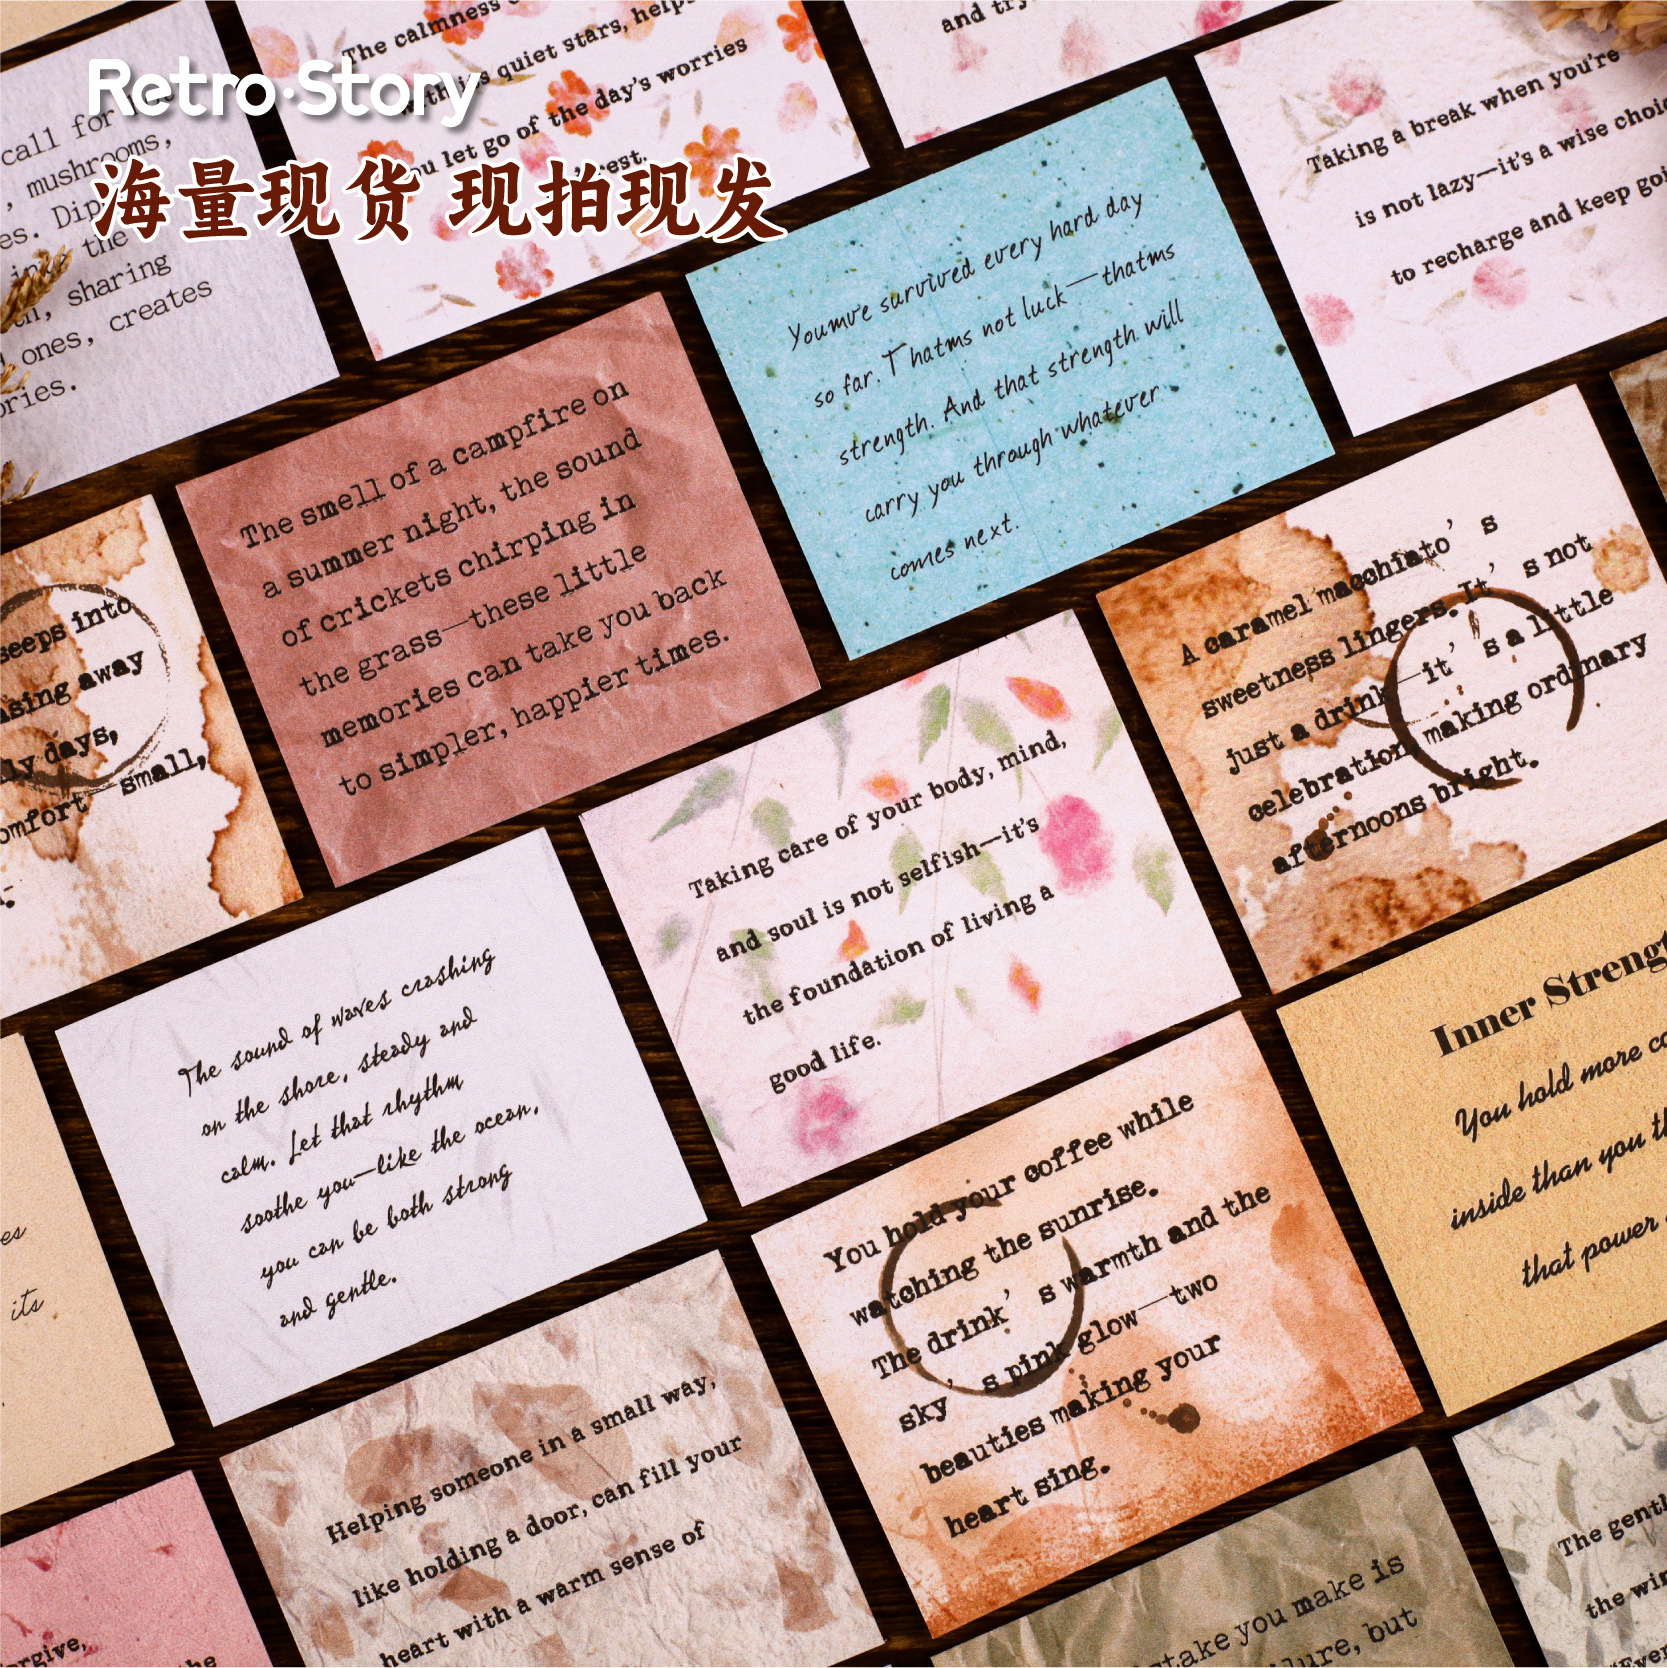 Retro·Story
海量现货 现拍现发
call for
mushrooms,
es. Dip
the
sharing
ones, creates
ories.
The calmness
quiet stars, helps
let go of the day's worries
rest.
and try
Taking a break when you're
is not lazy—it's a wise choice
to recharge and keep going
Youmve survived every hard day
so far. Thatms not luck—thatms
strength. And that strength will
carry you through whatever
comes next.
The smell of a campfire on
a summer night, the sound
of crickets chirping in
the grass—these little
memories can take you back
to simpler, happier times.
seeps into
away
days,
small,
A caramel macchiato's
sweetness lingers. It's not
just a drink—it's a little
celebration, making ordinary
afternoons bright.
Taking care of your body, mind,
and soul is not selfish—it's
the foundation of living a
good life.
The sound of waves crashing
on the shore, steady and
calm. Let that rhythm
soothe you—like the ocean,
you can be both strong
and gentle.
Inner Streng
You hold more
inside than you
that power
You hold your coffee while
watching the sunrise.
The drink's warmth and the
sky's pink glow—two
beauties making your
heart sing.
its
Helping someone in a small way,
like holding a door, can fill your
heart with a warm sense of
you make is
but
The
the
the